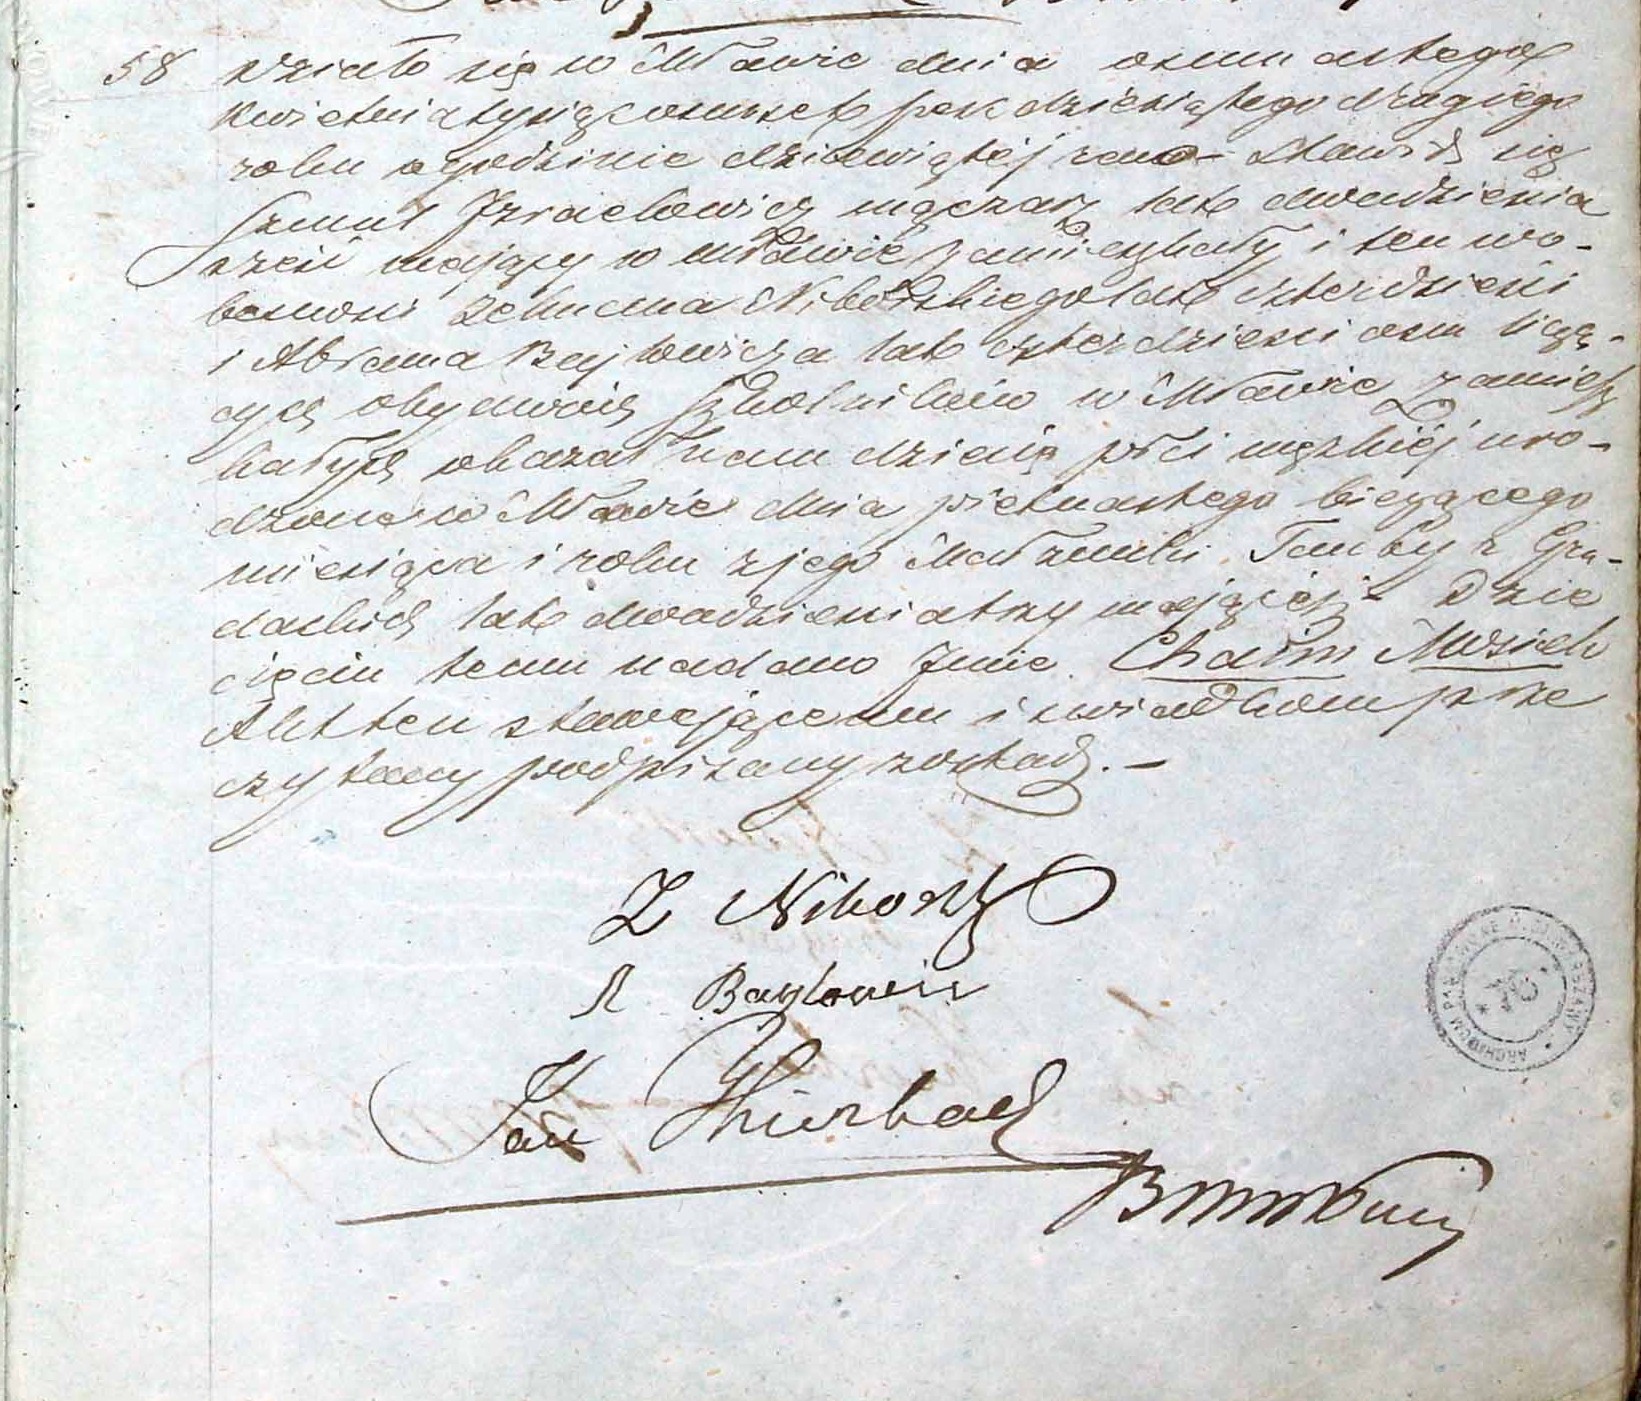 58 działo się w Mławie dnia osmnastego
Kwietnia tysiąc osmset pięćdziesiątego drugiego
roku o godzinie dziewiątéj rano – Stawił się
Szmul Izraelowicz mączarz lat dwadzieścia
sześć mający w Mławie zamieszkały i ten w o-
becności Zelmana Niborskiego lat czterdzieści
i Abrama Bajlowicza lat czterdzieści osm liczą-
cych obydwóch Szkolników w Mławie zamiesz
kałych okazał nam dziecię płci męzkiéj uro-
dzone w Mławie dnia piętnastego bieżącego
miesiąca i roku z jego Małżonki Tauby z Gra-
dackich lat dwadzieścia trzy mającéj – Dzie
cięciu temu nadano Imie Chaim Mosiek
Akt ten stawającemu i świadkom prze
czytany podpisany został. –
Z Niborsk
A Baylowicz
Jan
ARCHIWUM WARSZAWY